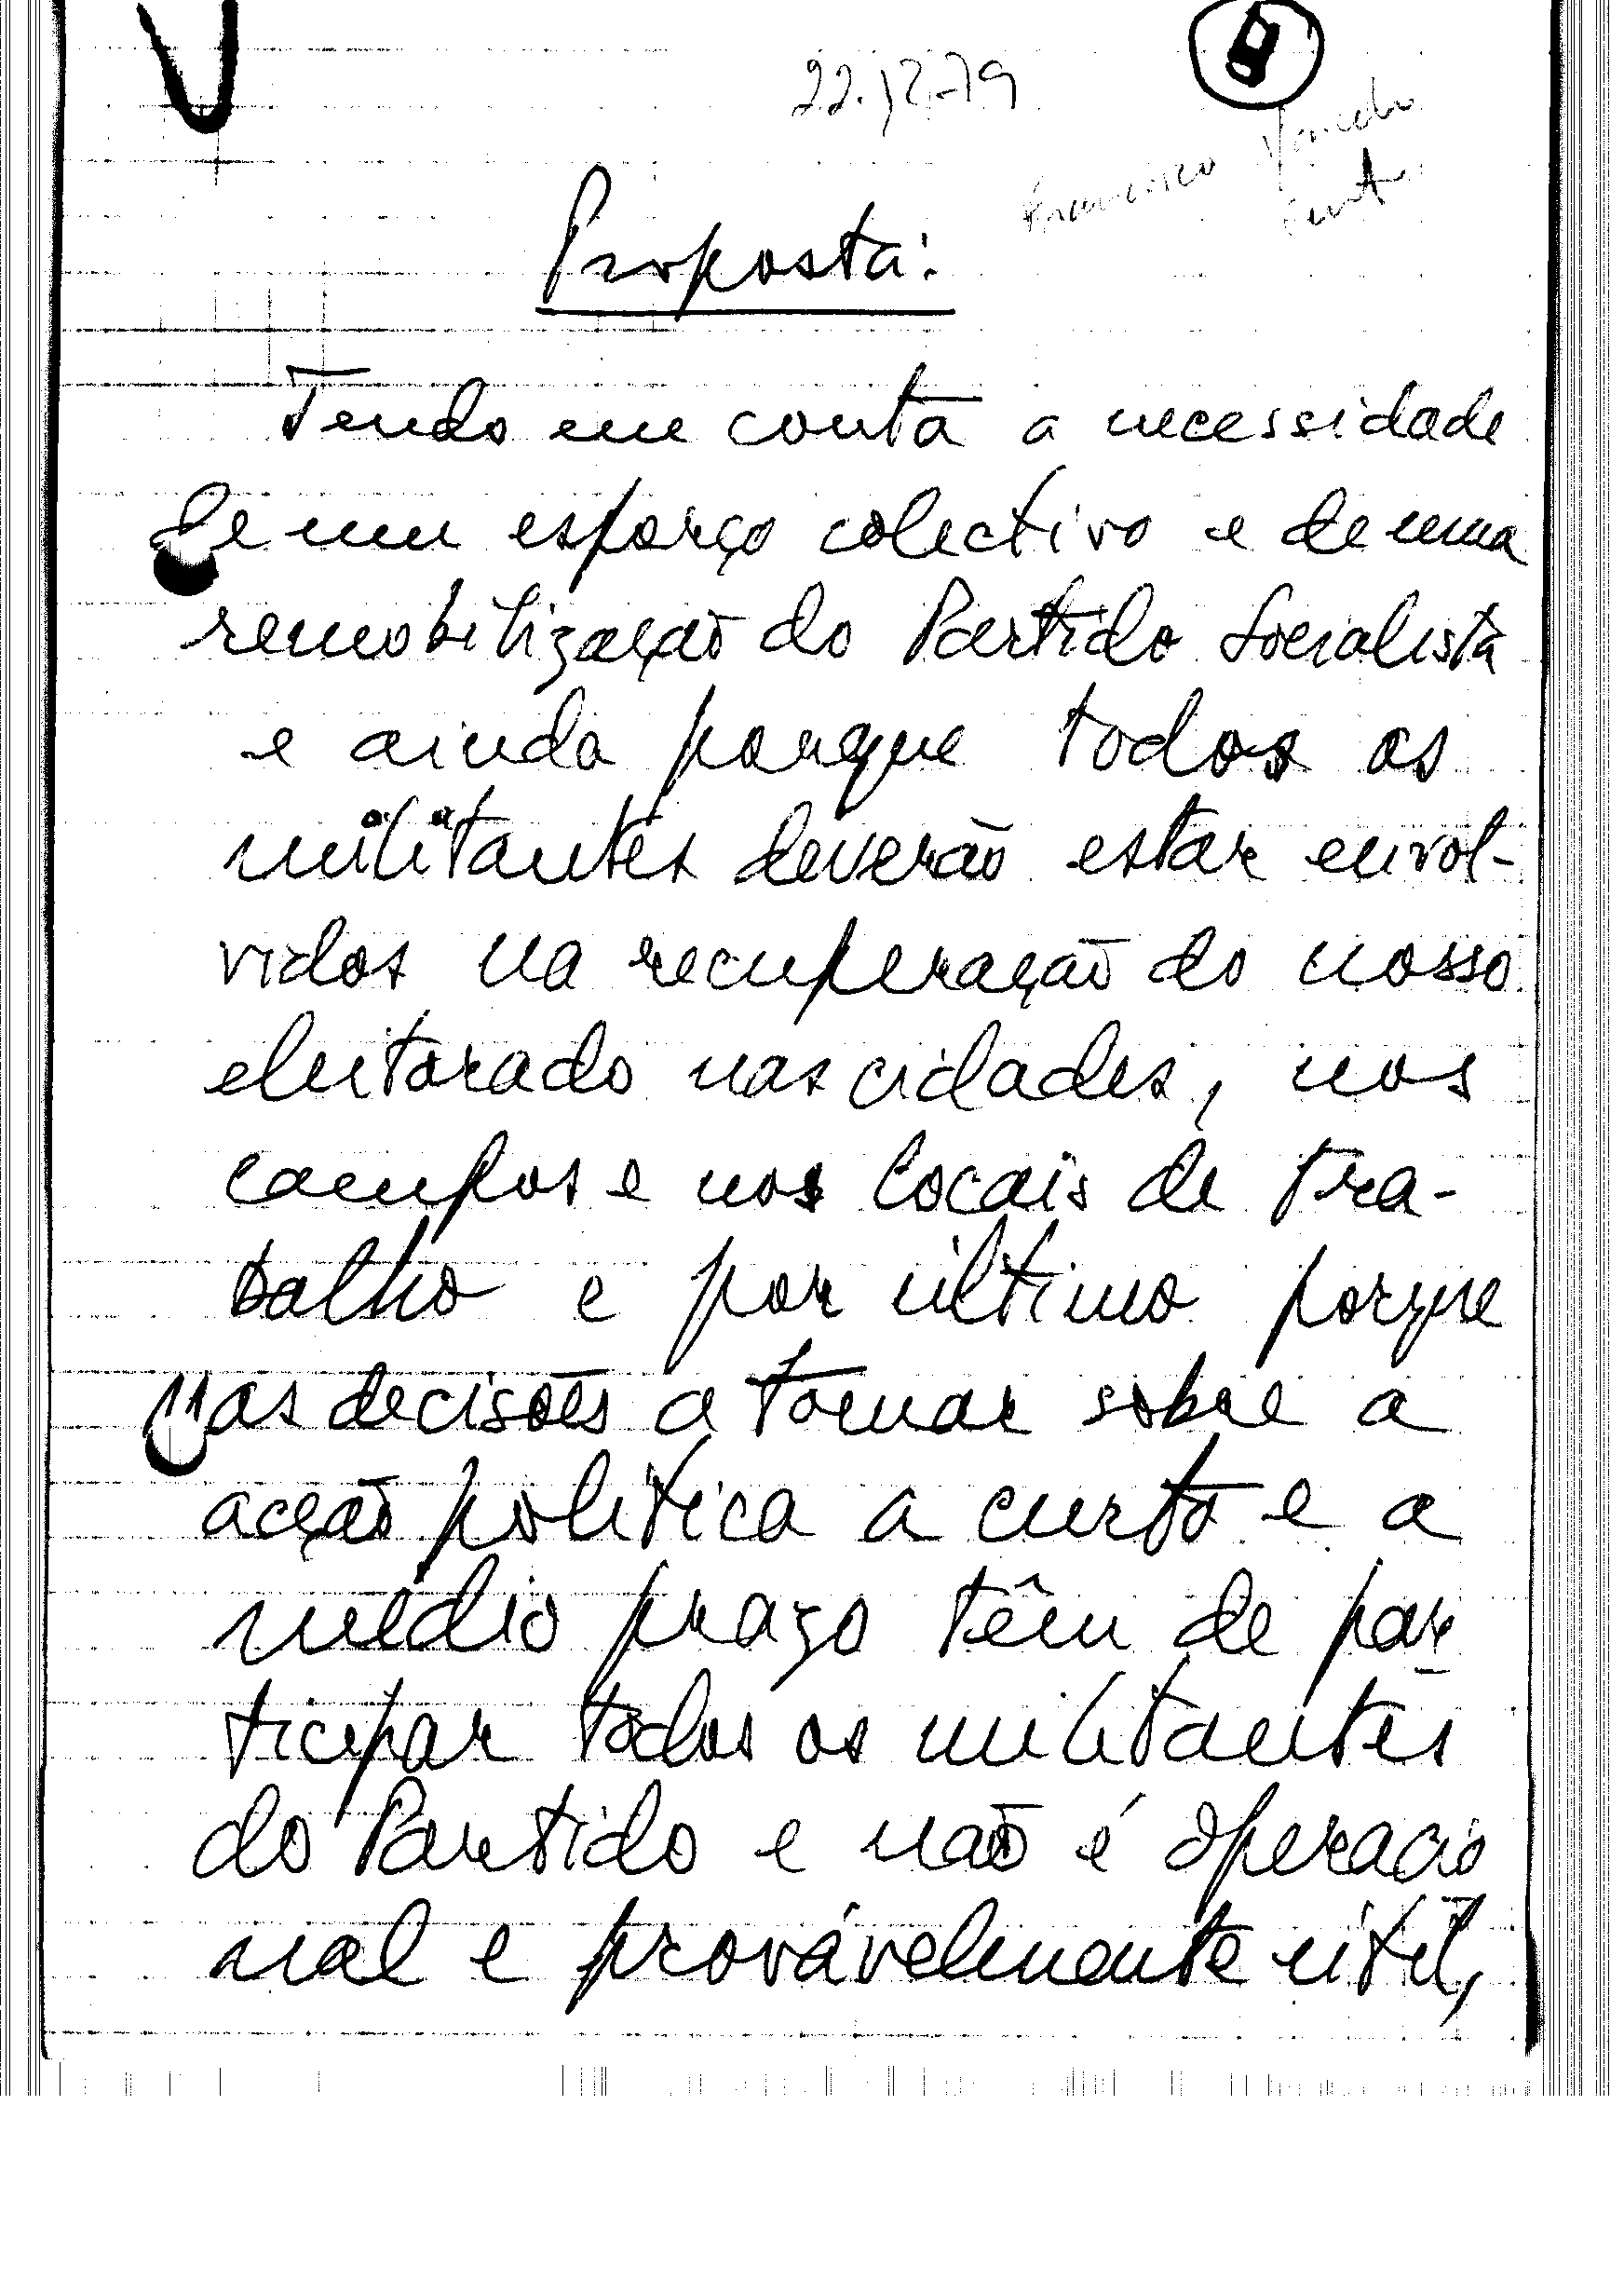 22.12-79
Francisco
Proposta:
Tendo em conta a necessidade
de um esforço colectivo e de uma
remobilização do Partido Socialista
e ainda porque todos os
militantes deverão estar envol-
vidos na recuperação do nosso
eleitorado nas cidades, nos
campos e nos locais de tra-
balho e por último porque
nas decisões a tomar sobre a
acção política a curto e a
médio prazo têm de par
ticipar todos os militantes
do Partido e não é operacio
nal e provávelmente útil,